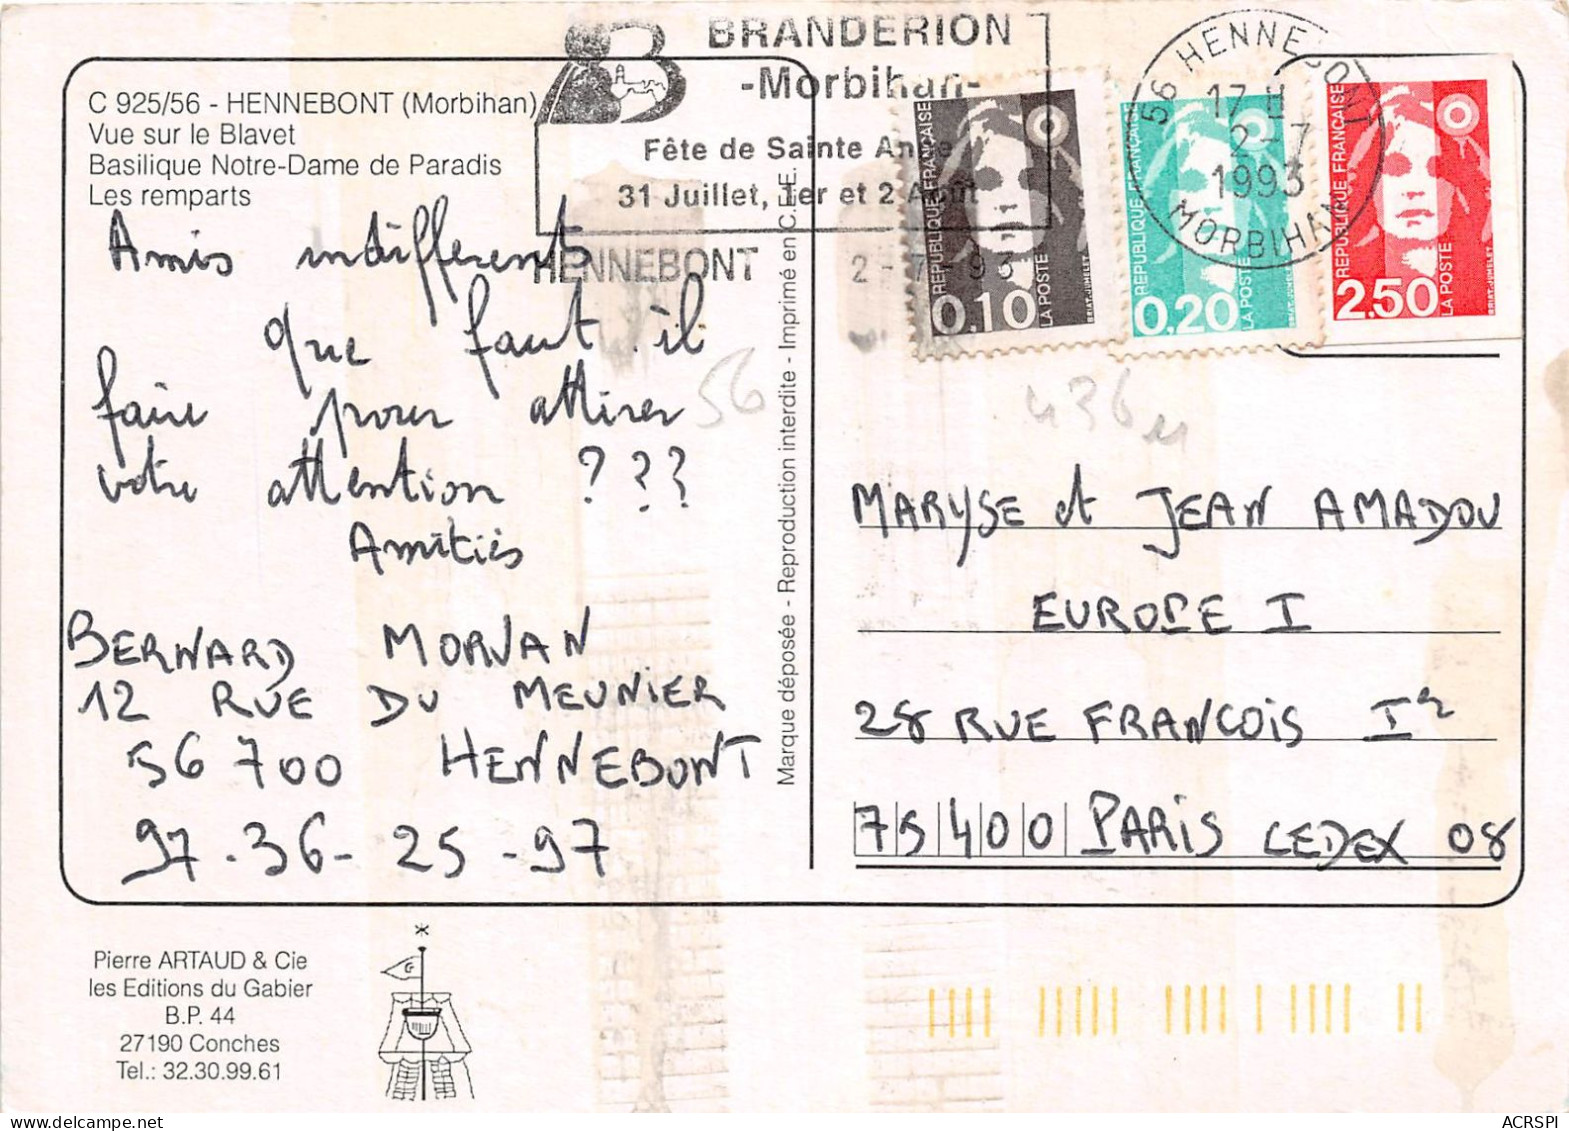 C 925/56 - HENNEBONT (Morbihan)
Vue sur le Blavet
Basilique Notre-Dame de Paradis
Les remparts
BRANDERION
-Morbihan-
Fête de Sainte Anne
31 Juillet, 1er et 2 Août
HENNEBONT 2-7-93
56 HENNEBONT
17 H
2-7
1993
MORBIHAN
RÉPUBLIQUE FRANÇAISE
0,10
LA POSTE
BRIAT-JUMELET
RÉPUBLIQUE FRANÇAISE
0,20
LA POSTE
BRIAT-JUMELET
RÉPUBLIQUE FRANÇAISE
2,50
LA POSTE
BRIAT-JUMELET
Amis indifferents
que faut il
faire pour attirer
votre attention ???
Amitiés
BERNARD MORVAN
12 RUE DU MEUNIER
56 700 HENNEBONT
97.36-25-97
56
Marque déposée - Reproduction interdite - Imprimé en C.E.E.
MARYSE et JEAN AMADOU
EUROPE I
28 RUE FRANCOIS Ier
75400 PARIS CEDEX 08
Pierre ARTAUD & Cie
les Editions du Gabier
B.P. 44
27190 Conches
Tel.: 32.30.99.61
ACRSPI